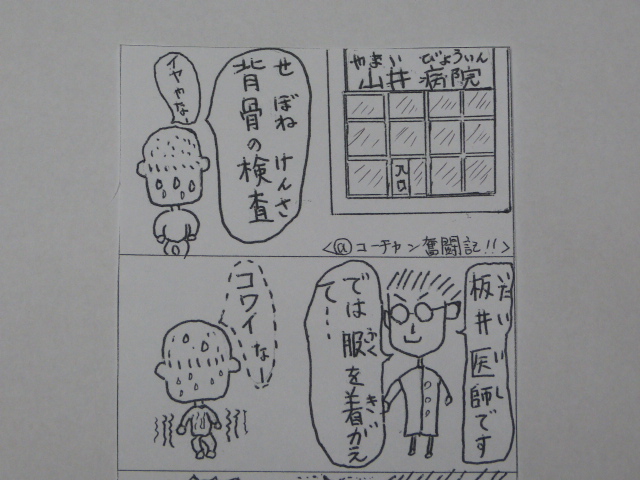 やまい びょういん
山井 病院
入口
せぼね けんさ
背骨の検査
イヤやな
<ａコーチャン奮闘記!!>
いたい いし
板井医師です
では服を着がえ
ふく き
て…
コワイなー